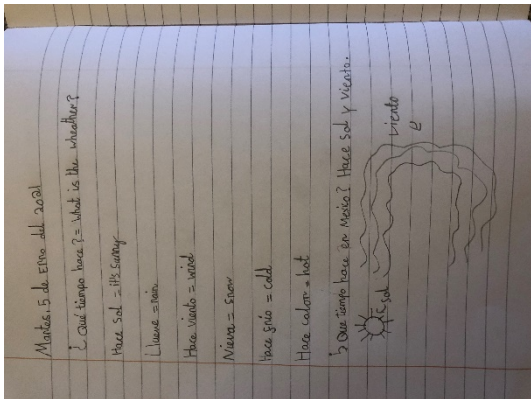 Martes, 5 de Enro del 2021
¿ Qué tiempo hace? = What is the wheather?
Hace Sol = it's sunny
Llueve = rain
Hace viento = wind
Nieva = snow
Hace frío = cold
Hace calor = hot
¿ Que tiempo hace en Mexico? Hace Sol y Viento.
Sol
Viento